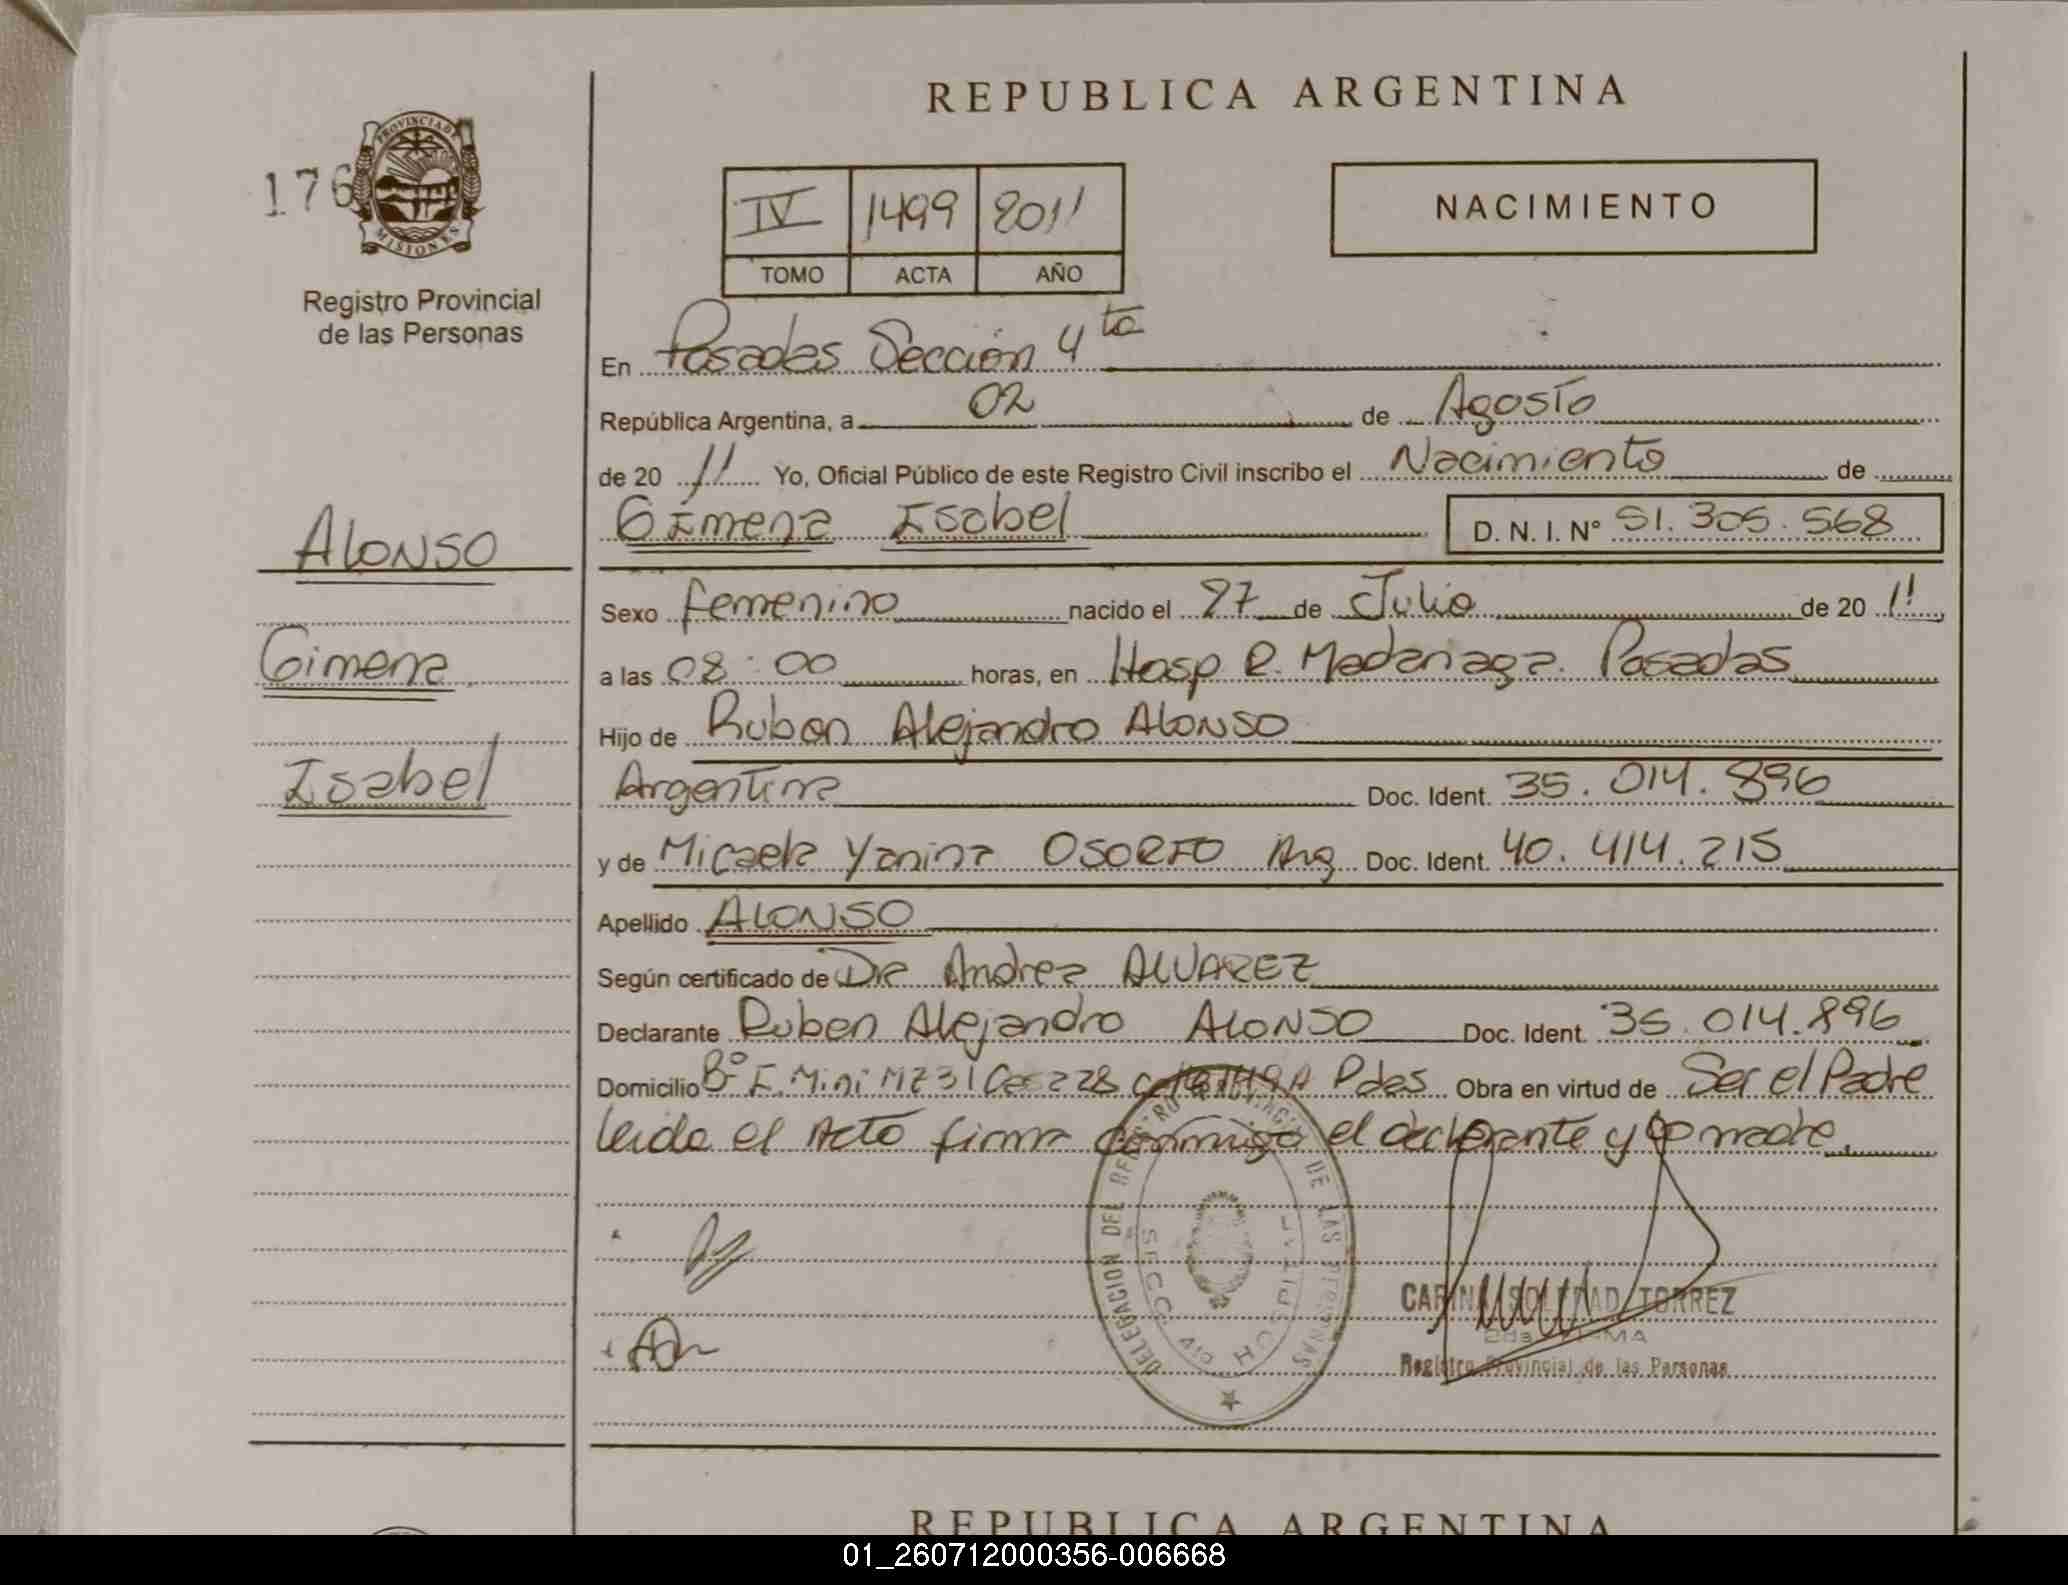 REPUBLICA ARGENTINA
176
PROVINCIA DE MISIONES
Registro Provincial
de las Personas
IV 1499 2011
TOMO ACTA AÑO
NACIMIENTO
En Posadas Sección 4ta
República Argentina, a 02 de Agosto
de 20 11 Yo, Oficial Público de este Registro Civil inscribo el Nacimiento de
Gimena Isabel D. N. I. N° 51.305.568
ALONSO
Gimena
Isabel
Sexo femenino nacido el 27 de Julio de 20 11
a las 08:00 horas, en Hosp R. Madariaga. Posadas
Hijo de Ruben Alejandro ALONSO
Argentina Doc. Ident. 35.014.896
y de Micaela Yanina OSORIO Arg Doc. Ident. 40.414.215
Apellido ALONSO
Según certificado de Dra Andrea ALVAREZ
Declarante Ruben Alejandro ALONSO Doc. Ident. 35.014.896
Domicilio Bº I. Mini MZ 31 Casa 228 Pdas Obra en virtud de Ser el Padre
leida el Acto firma conmigo el declarante y la madre.
DELEGACION DEL REGISTRO PROVINCIAL DE LAS PERSONAS
SECC. 4ta HOSPITAL
CARINA SOLEDAD TORREZ
2da FIRMA
Registro Provincial de las Personas
REPUBLICA ARGENTINA
01_260712000356-006668